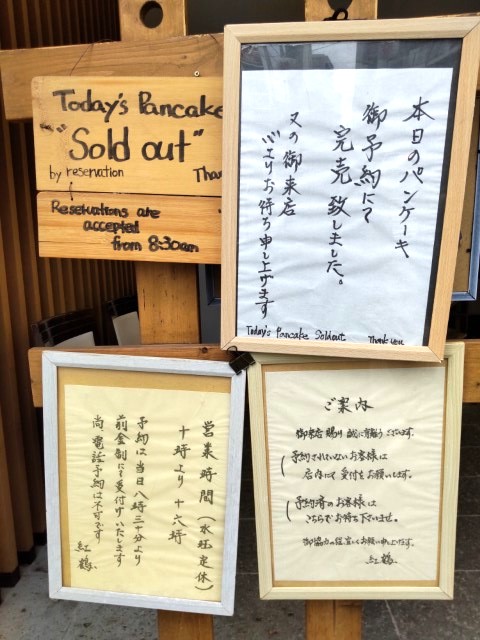 Today's Pancake
"Sold out"
by reservation
Reservations are
accepted
from 8:30am
本日のパンケーキ
御予約にて
完売致しました。
又の御来店
心よりお待ち申し上げます
Today's Pancake Soldout Thank you
営業時間（水班定休）
十時より十六時
予約は当日八時三十分より
前金制にて受付けいたします
尚、電話予約は不可です
紅鶴
ご案内
御来店賜り誠に有難うございます。
予約されていないお客様は
店内にて受付をお願いします。
予約済のお客様は
こちらでお待ち下さいませ。
御協力の程宜しくお願い申し上げます。
紅鶴